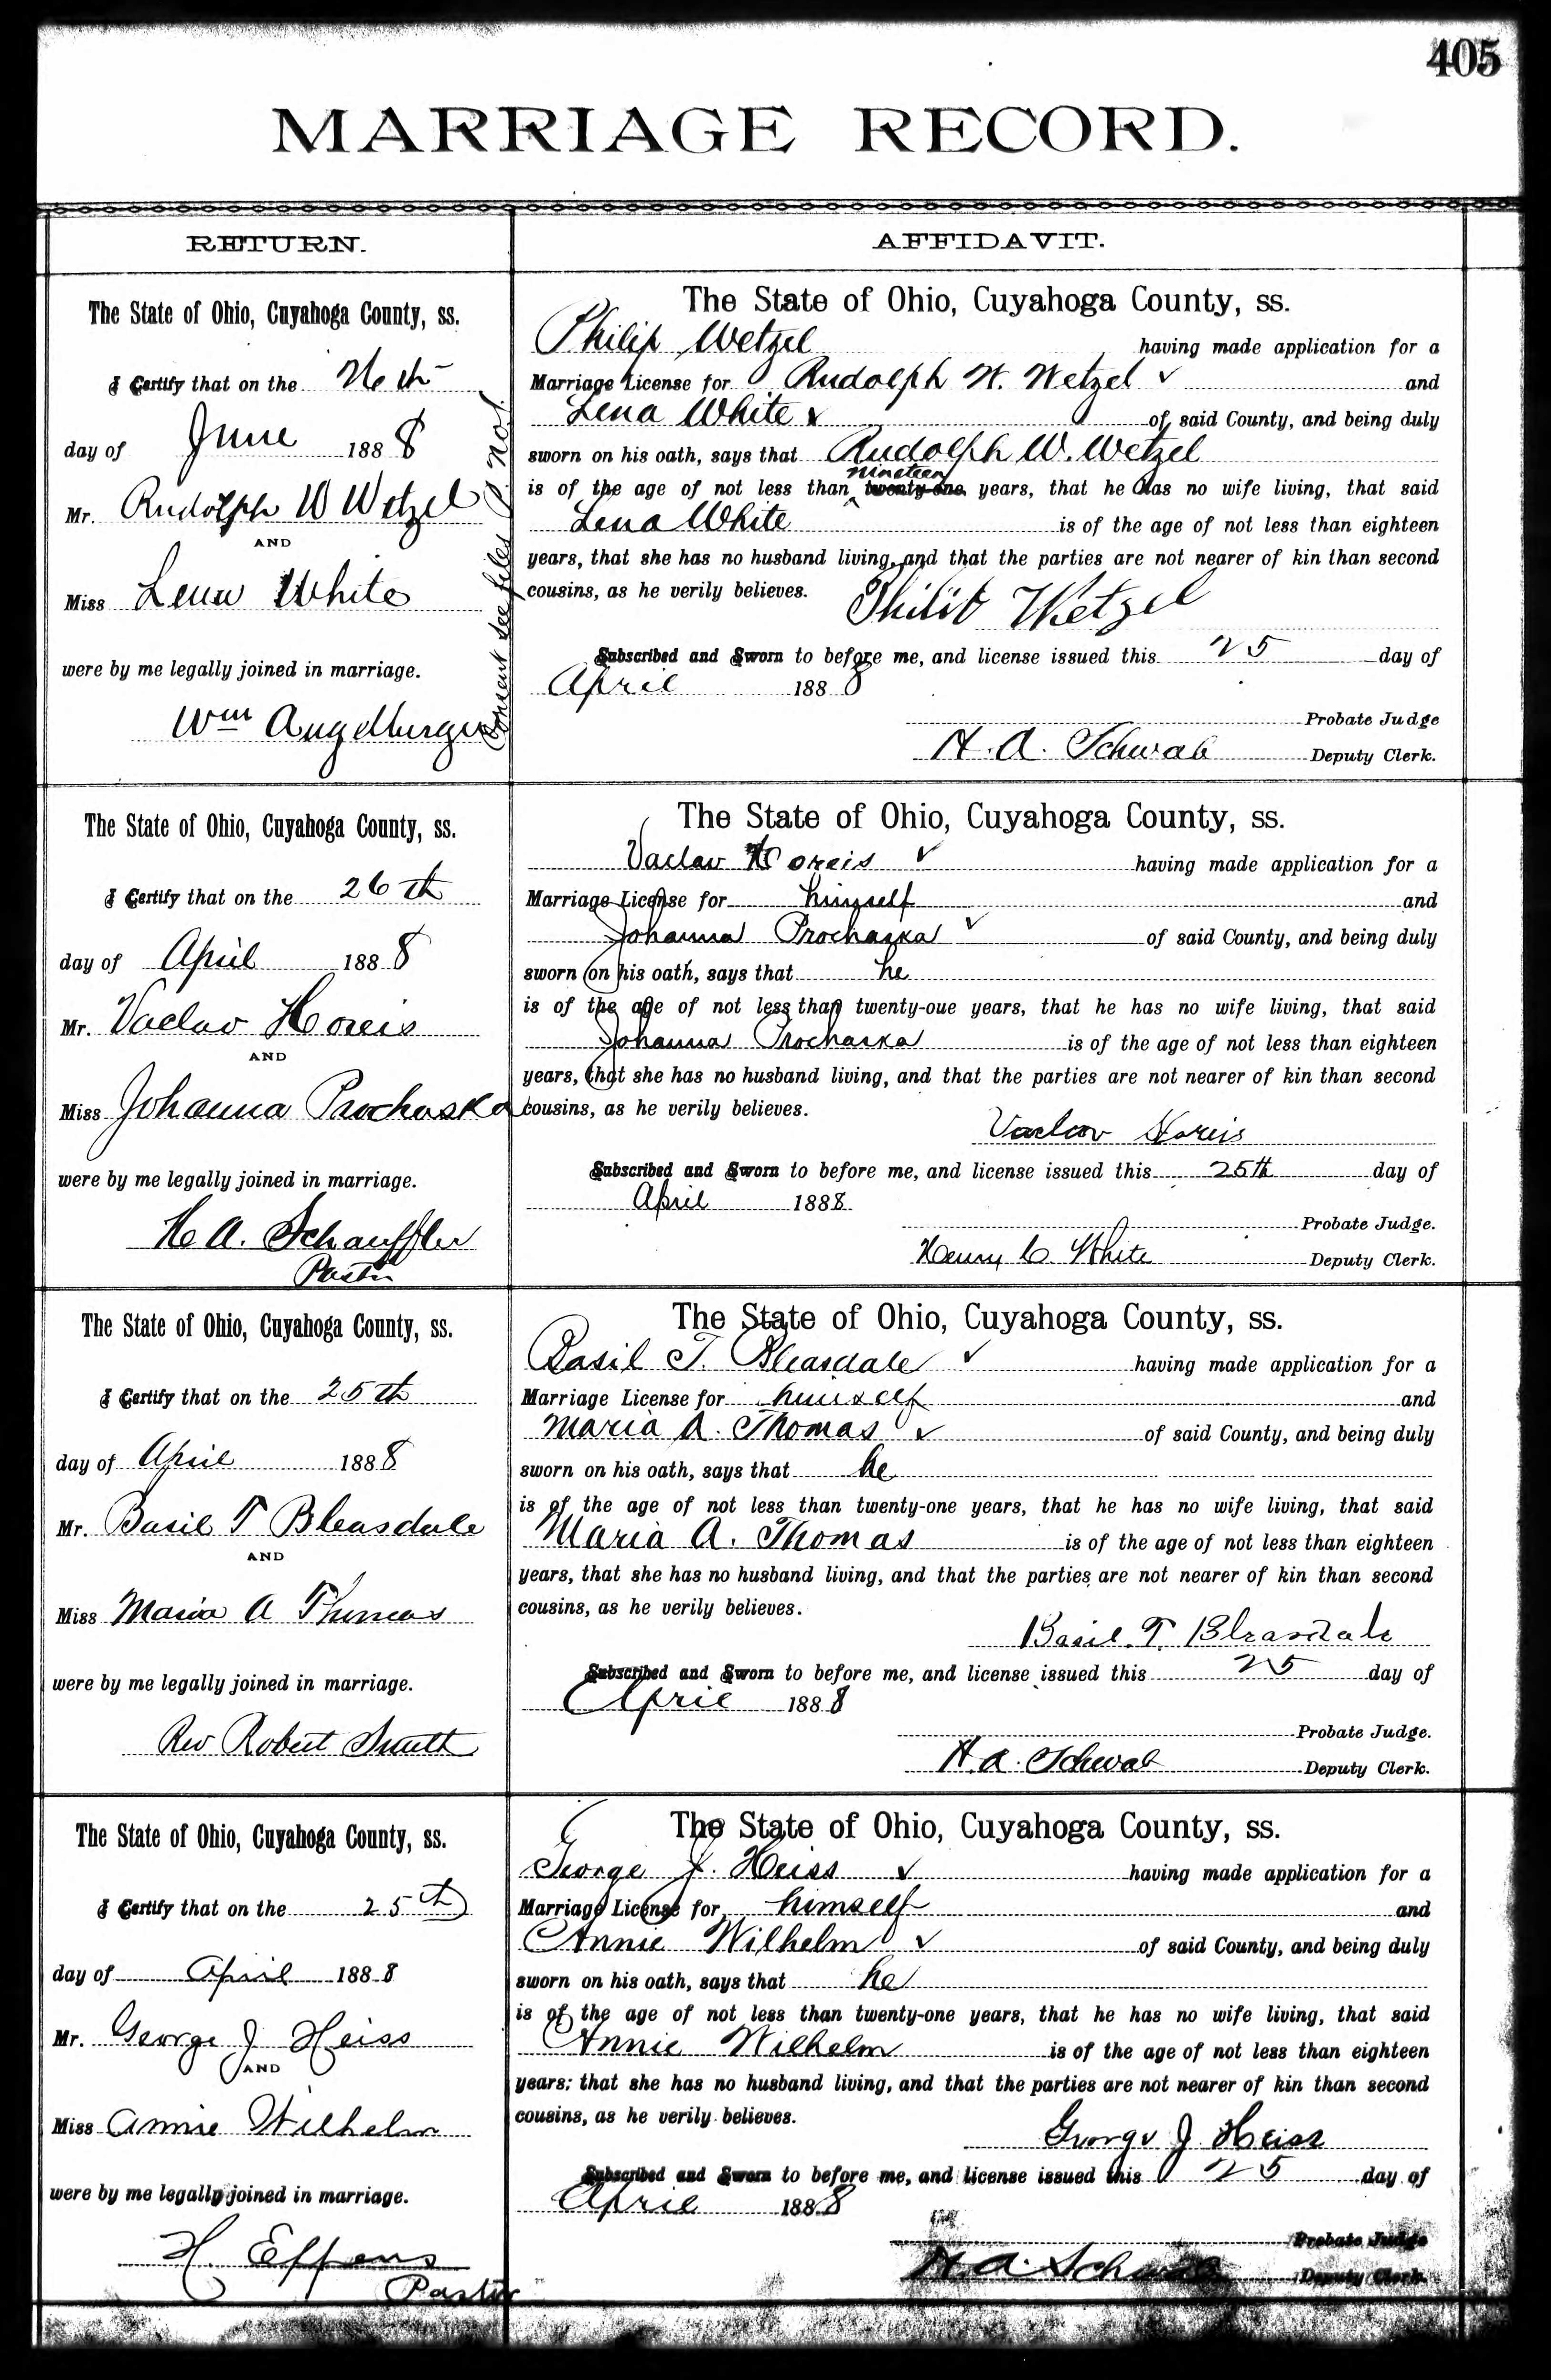 405
MARRIAGE RECORD.
RETURN.
AFFIDAVIT.
The State of Ohio, Cuyahoga County, ss.
I Certify that on the 26th
day of June 1888
Mr. Rudolph W Wetzel
AND
Miss Lena White
were by me legally joined in marriage.
Wm
Consent see files P. No 1.
The State of Ohio, Cuyahoga County, ss.
Philip Wetzel having made application for a
Marriage License for Rudolph W. Wetzel and
Lena White of said County, and being duly
sworn on his oath, says that Rudolph W. Wetzel
nineteen
is of the age of not less than twenty-one years, that he has no wife living, that said
Lena White is of the age of not less than eighteen
years, that she has no husband living, and that the parties are not nearer of kin than second
cousins, as he verily believes. Philip Wetzel
Subscribed and Sworn to before me, and license issued this 25 day of
April 1888
Probate Judge
H. A. Schwab Deputy Clerk.
The State of Ohio, Cuyahoga County, ss.
I Certify that on the 26th
day of April 1888
Mr. Vaclav Horeis
AND
Miss Johanna Prochaska
were by me legally joined in marriage.
H. A. Schauffler
Pastor
The State of Ohio, Cuyahoga County, ss.
Vaclav Horeis having made application for a
Marriage License for himself and
Johanna Prochaska of said County, and being duly
sworn on his oath, says that he
is of the age of not less than twenty-oue years, that he has no wife living, that said
Johanna Prochaska is of the age of not less than eighteen
years, that she has no husband living, and that the parties are not nearer of kin than second
cousins, as he verily believes.
Vaclav Horeis
Subscribed and Sworn to before me, and license issued this 25th day of
April 1888.
Probate Judge.
Henry C. White Deputy Clerk.
The State of Ohio, Cuyahoga County, ss.
I Certify that on the 25th
day of April 1888
Mr. Basil T Bleasdale
AND
Miss Maria A Thomas
were by me legally joined in marriage.
Rev Robert Smith
The State of Ohio, Cuyahoga County, ss.
Basil T. Bleasdale having made application for a
Marriage License for himself and
Maria A. Thomas of said County, and being duly
sworn on his oath, says that he
is of the age of not less than twenty-one years, that he has no wife living, that said
Maria A. Thomas is of the age of not less than eighteen
years, that she has no husband living, and that the parties are not nearer of kin than second
cousins, as he verily believes.
Basil. T. Bleasdale
Subscribed and Sworn to before me, and license issued this 25 day of
April 1888
Probate Judge.
H. A. Schwab Deputy Clerk.
The State of Ohio, Cuyahoga County, ss.
I Certify that on the 25th
day of April 1888
Mr. George J Heiss
AND
Miss Annie Wilhelm
were by me legally joined in marriage.
H. Effens
Pastor
The State of Ohio, Cuyahoga County, ss.
George J. Heiss having made application for a
Marriage License for himself and
Annie Wilhelm of said County, and being duly
sworn on his oath, says that he
is of the age of not less than twenty-one years, that he has no wife living, that said
Annie Wilhelm is of the age of not less than eighteen
years; that she has no husband living, and that the parties are not nearer of kin than second
cousins, as he verily believes.
George J. Heiss
Subscribed and Sworn to before me, and license issued this 25 day of
April 1888
Probate Judge
H. A. Schwab Deputy Clerk.